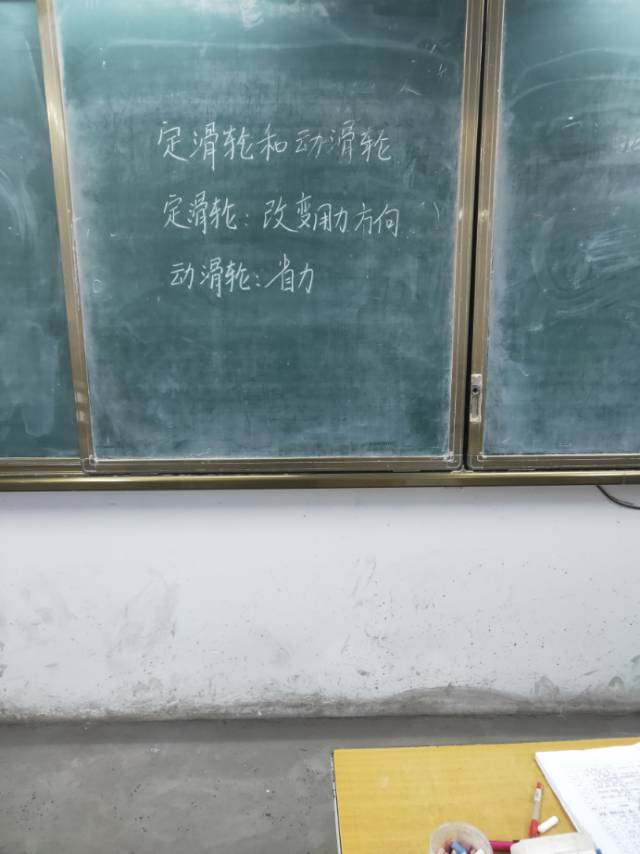 定滑轮和动滑轮
定滑轮：改变用力方向
动滑轮：省力